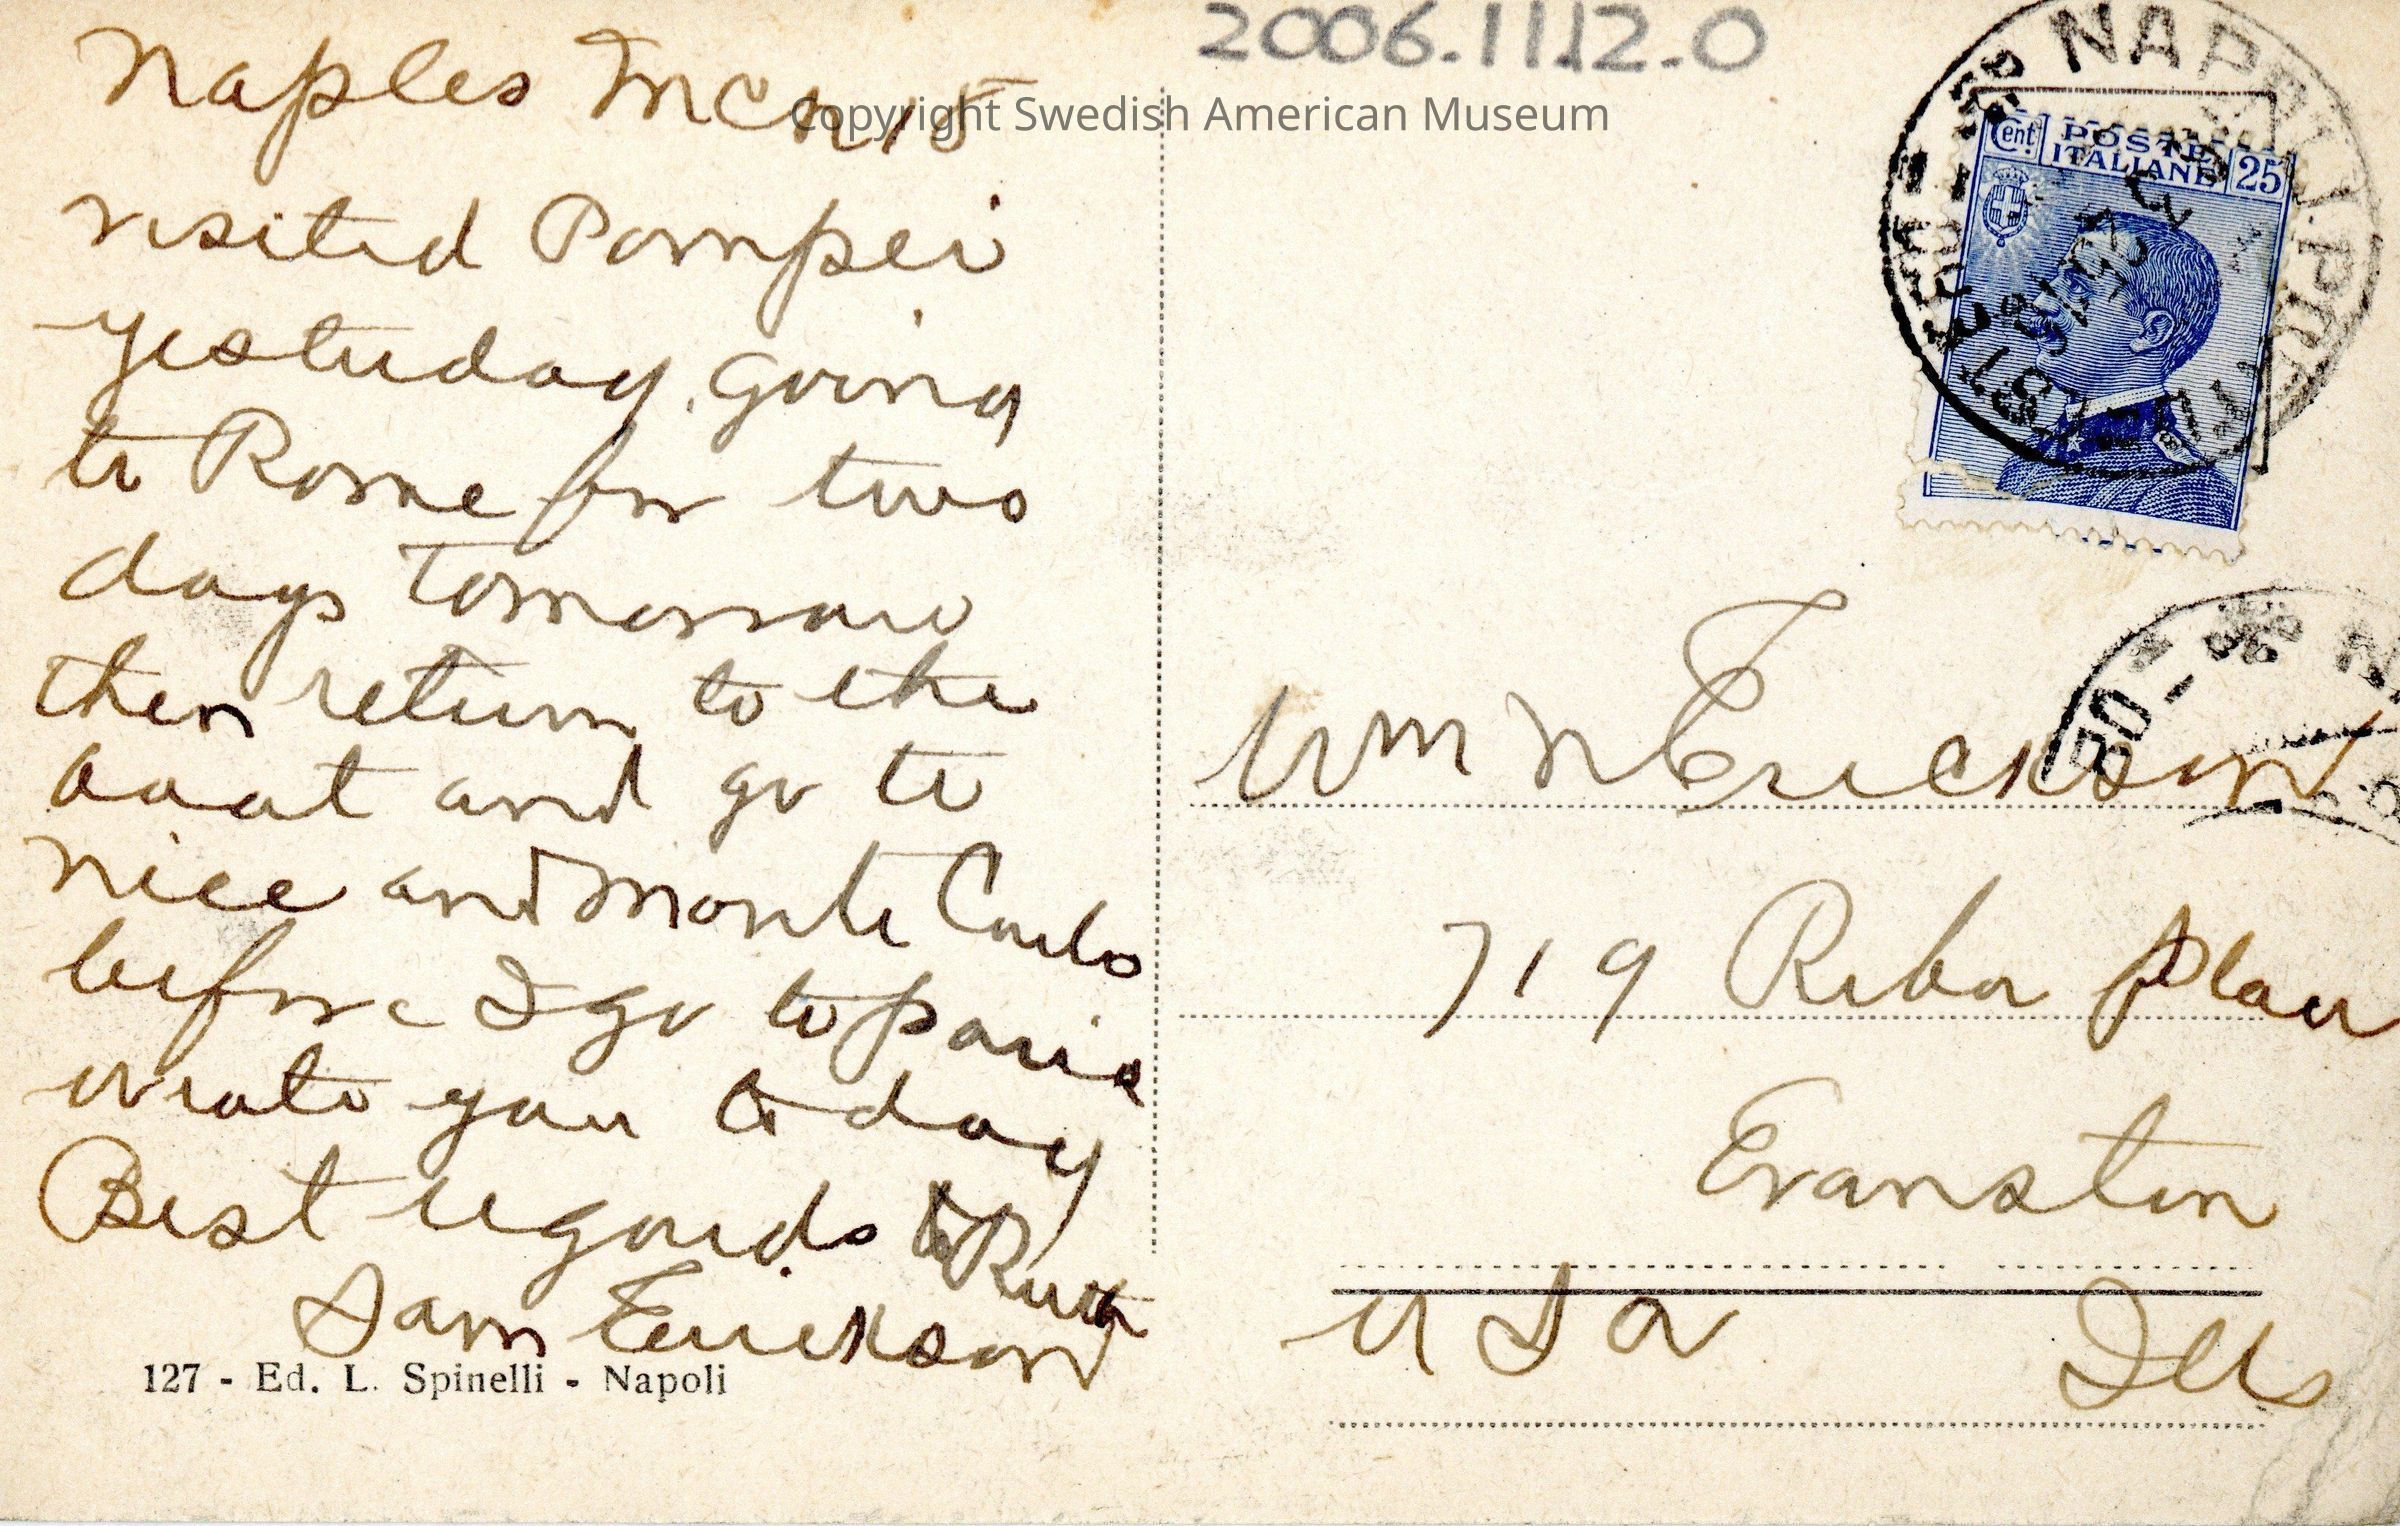 2006.11.12.0
Copyright Swedish American Museum
Naples Mch 15
visited Pompei
yesterday. Going
to Rome for two
days Tomorrow
then return to the
boat and go to
Nice and Monte Carlo
before I go to Paris
wrote you today
Best regards to Ruth
Sam Erickson
127 - Ed. L. Spinelli - Napoli
NAPOLI
Cent. POSTE ITALIANE 25
Wm N Erickson
719 Reba Place
Evanston
USA Ills